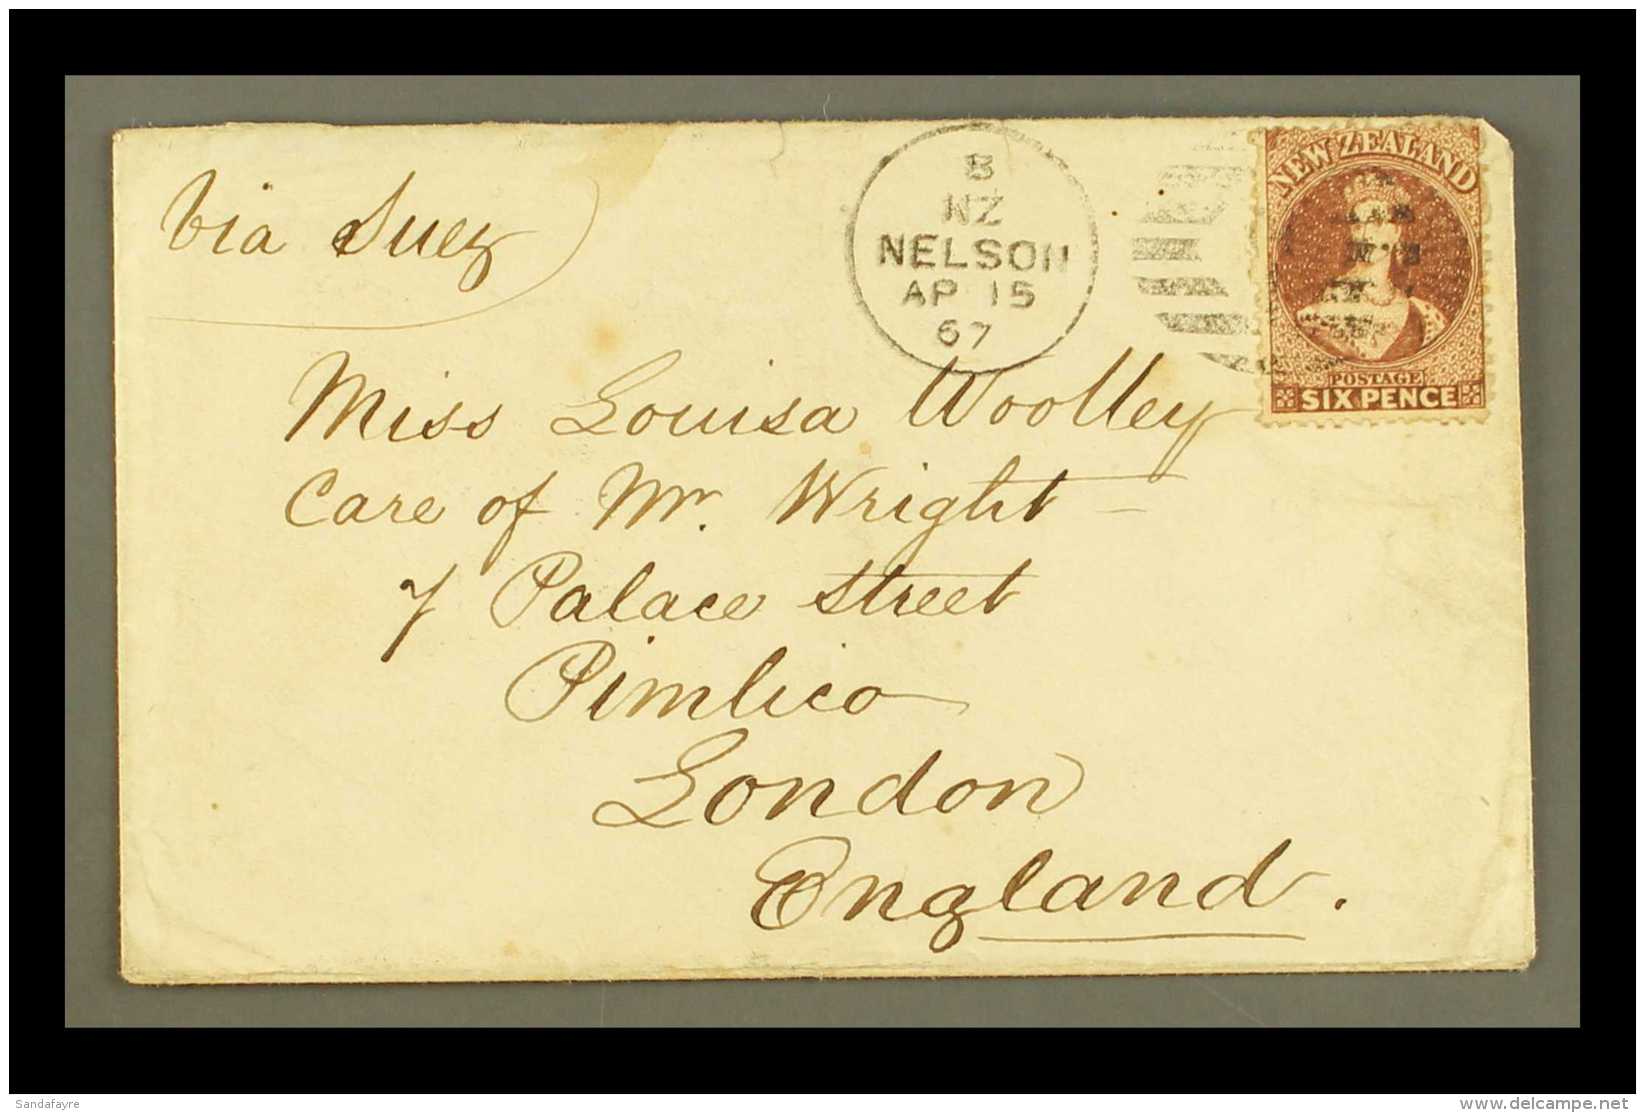 Via Suez
B
NZ
NELSON
AP 15
67
NEW ZEALAND
POSTAGE
SIX PENCE
Miss Louisa Woolley
Care of Mr. Wright
7 Palace Street
Pimlico
London
England.
Sandafayre
delcampe.net